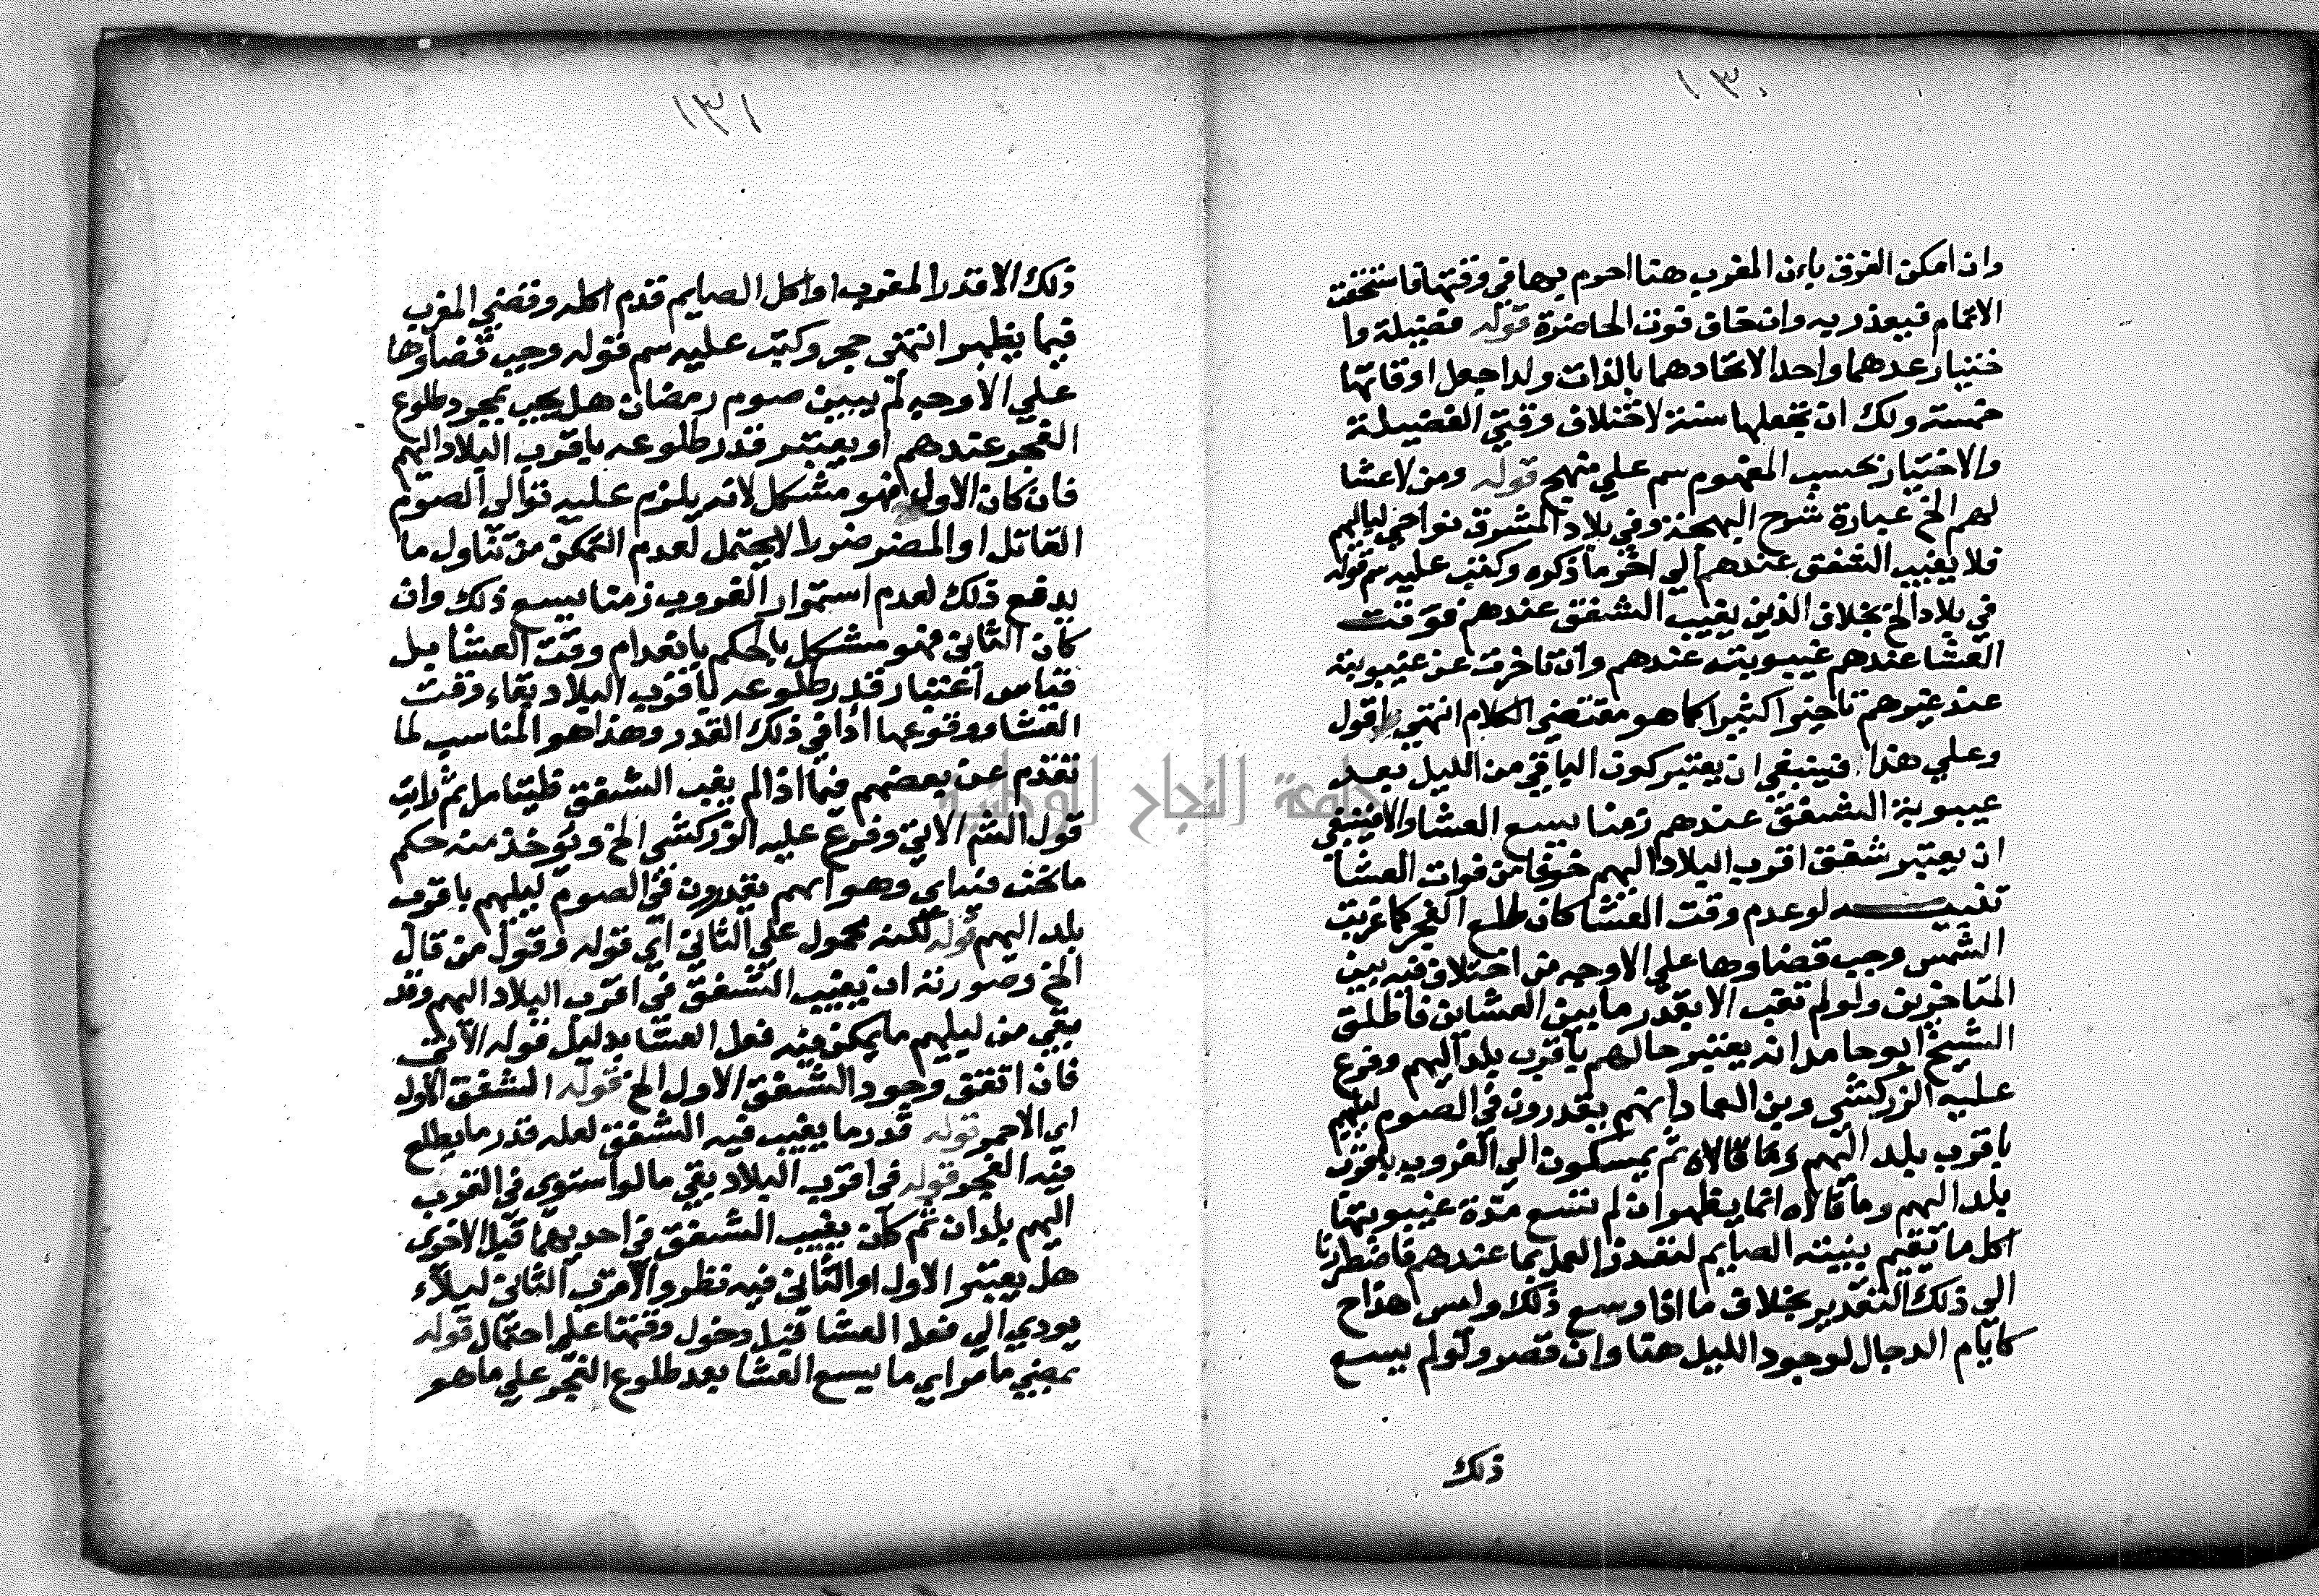 ١٣٠
وان امكن الفرق بان المغرب هنا احرم بها في وقتها فاستحقت
الاتمام فيعذر به وان خاف فوت الحاضرة قوله فضيلة وا
ختيار عدهما واحد الاتحادهما بالذات ولذا جعل اوقاتها
خمسة ولك ان تجعلها ستة لاختلاف وقتي الفضيلة
والاختيار بحسب المفهوم سم علي منهج قوله ومن لا عشا
لهم الخ عبارة شرح البهجة وفي بلاد المشرق نواحي لياليهم
فلا يغيب الشفق عندهم الي اخر ما ذكره وكتب عليه سم قوله
في بلاد الخ بخلاف الذين يغيب الشفق عندهم فوقت
العشا عندهم غيبوبته عندهم وان تاخرت عن غيبوبته
عند غيرهم تاخيرا كثيرا كما هو مقتضي الكلام انتهي اقول
وعلي هذا فينبغي ان يعتبر كون الباقي من الليل بعد
غيبوبة الشفق عندهم زمنا يسع العشا والا فينبغي
ان يعتبر شفق اقرب البلاد اليهم خوفا من فوات العشا
تنبيه لو عدم وقت العشا كان طلع الفجر كما غربت
الشمس وجب قضاوها علي الاوجه من اختلاف فيه بين
المتاخرين ولو لم تغب الا بقدر ما بين العشاين فاطلق
الشيخ ابو حامد انه يعتبر حالهم باقرب بلد اليهم وفرع
عليه الزركشي وبن العماد انهم يقدرون في الصوم ليلهم
باقرب بلد اليهم وما قالاه ثم يمسكون الي الغروب باقرب
بلد اليهم وما قالاه انما يظهر ان لم تتسع مدة غيبوبتها
اكل ما تقيم ببنيته الصايم لتعذر العمل بما عندهم فاضطررنا
الي ذلك التقدير بخلاف ما اذا وسع ذلك وليس هذا ح
كايام الدجال لوجود الليل هنا وان قصر ولو لم يسع
ذلك
١٣١
ذلك الا قدر المغرب او اكل الصايم قدم اكله وقضي المغرب
فيما يظهر انتهي حجر وكتب عليه سم قوله وجب قضاوها
علي الاوجه لم يبين صوم رمضان هل يجب بمجرد طلوع
الفجر عندهم او يعتبر قدر طلوعه باقرب البلاد اليهم
فان كان الاول فهو مشكل لانه يلزم عليه توالي الصوم
القاتل او المضر ضررا لا يحتمل لعدم التمكن من تناول ما
يدفع ذلك لعدم استمرار الغروب زمنا يسع ذلك وان
كان الثاني فهو مشكل بالحكم بانعدام وقت العشا بل
قياس اعتبار قدر طلوعه باقرب البلاد بقاء وقت
العشا ووقوعها ادا في ذلك القدر وهذا هو المناسب لما
تقدم عن بعضهم فيما اذا لم يغب الشفق فليتامل ثم رايت
قول الشم الاتي وفرع عليه الزركشي الخ ويوخذ منه حكم
ما نحن فيه اي وهو انهم يقدرون في الصوم ليلهم باقرب
بلد اليهم قوله لكنه محمول علي الثاني اي قوله وقول من قال
الخ وصورته ان يغيب الشفق في اقرب البلاد اليهم وقد
بقي من ليلهم ما يمكن فيه فعل العشا بدليل قوله الاتي
فان اتفق وجود الشفق الاول الخ قوله الشفق الاول
اي الاحمر قوله قدر ما يغيب فيه الشفق لعله قدر ما يطلع
فيه الفجر قوله في اقرب البلاد بقي ما لو استوي في القرب
اليهم بلدان ثم كان يغيب الشفق في احديهما قبل الاخري
هل يعتبر الاول او الثاني فيه نظر والاقرب الثاني ليلاء
يودي الي فعل العشا قبل دخول وقتها علي احتمال قوله
بمضي ما مر اي ما يسع العشا بعد طلوع الفجر علي ما هو
جامعة النجاح الوطنية